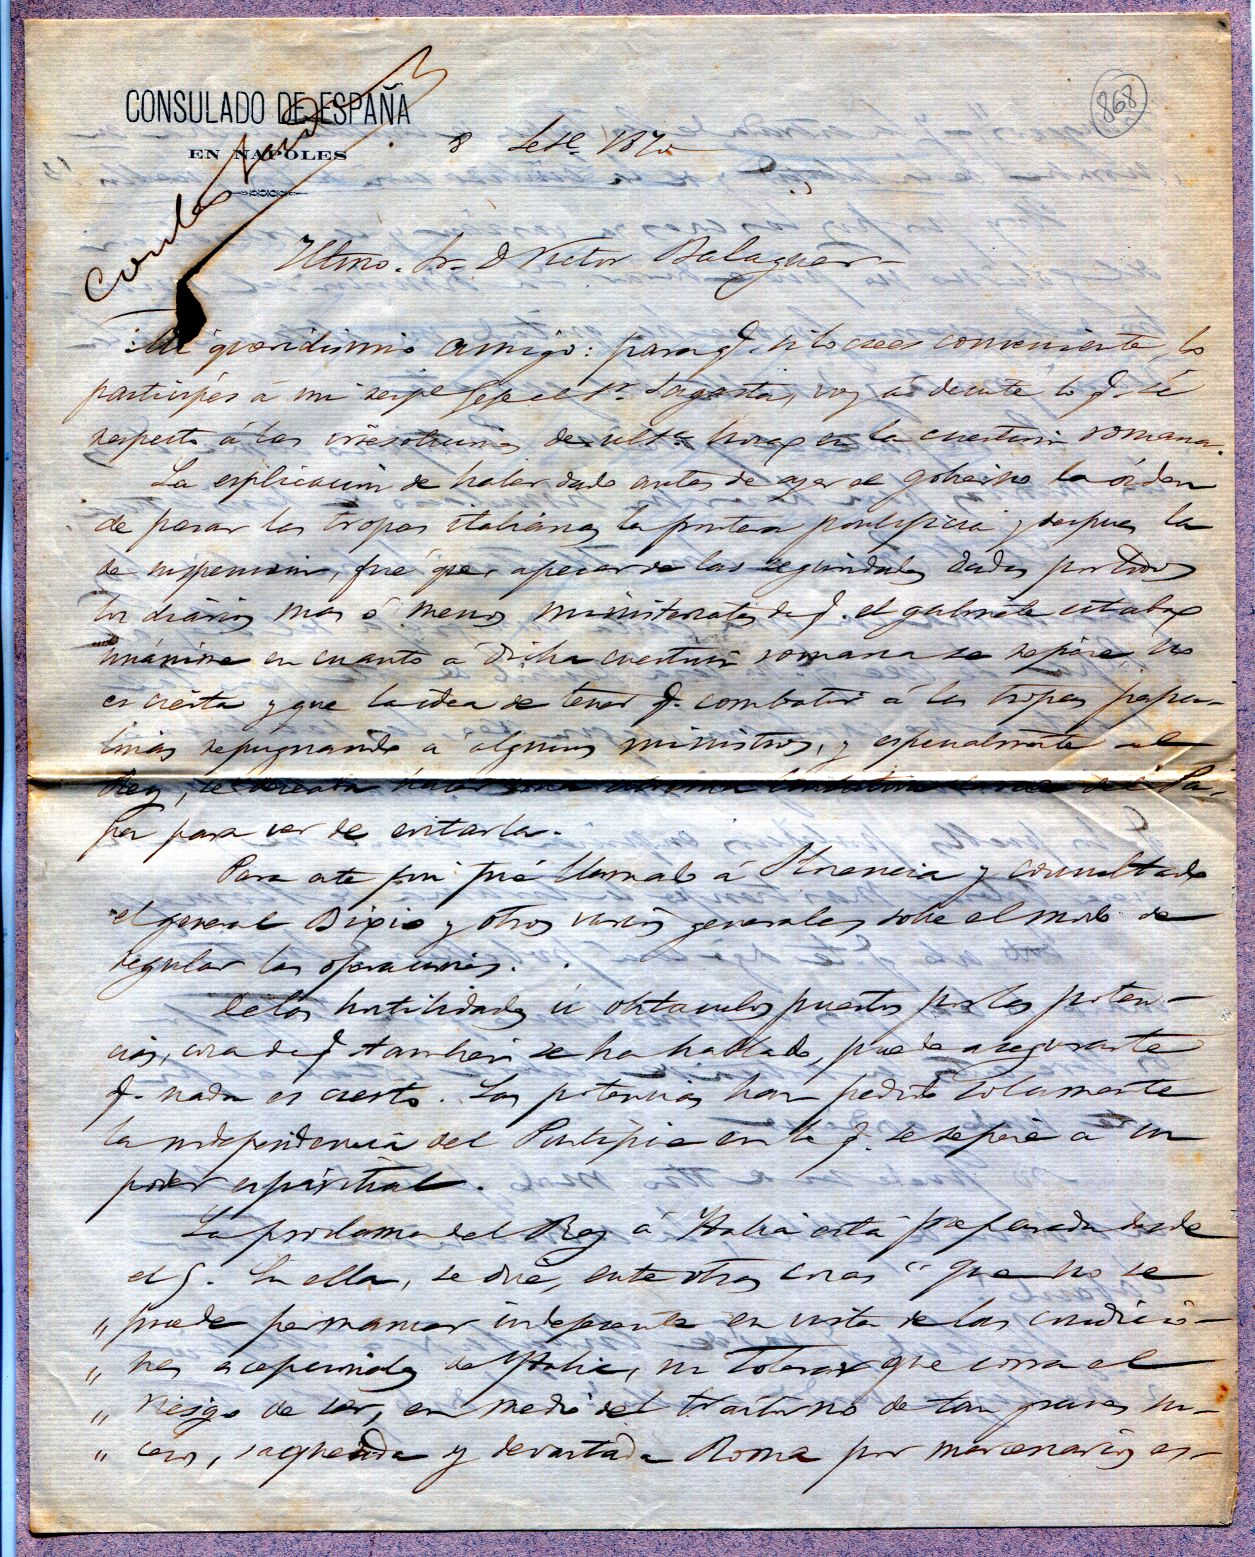 868
CONSULADO DE ESPAÑA
EN NAPOLES
8 Sete 1870
Iltmo. Sr. D Victor Balaguer
Mi queridisimo amigo: para q. si lo crees conveniente, lo
participes á mi Gefe el Sr. Sagasta, voy á decirte lo q. sé
respecto á las de ulta. hora en la cuestion romana.
La esplicacion de haber dado antes de ayer el gobierno la órden
de pasar las tropas italianas la frontera pontificia y despues la
de suspension, fué que apesar de las seguridades dadas por todos
los diarios mas ó menos ministeriales de q. el gabinete estaba
unánime en cuanto á dicha cuestion romana se refiere, no
es cierta y que la idea de tener q. combatir á las tropas papa-
linas repugnando a algunos ministros, y especialmente al
Rey, se desea hacer una última tentativa cerca del Pa-
pa para ver de evitarla.
Para este fin fué llamado á Florencia y consultado
el general Bixio y otros varios generales sobre el modo de
regular las operaciones.
De las hostilidades ú obstaculos puestos por las poten-
cias, cosa de q. tambien se ha hablado, puedo asegurarte
q. nada es cierto. Las potencias han pedido solamente
la independencia del Pontifice en lo q. se refiere á su
poder espiritual.
La proclama del Rey á Italia está preparada desde
el 5. En ella, se dice, entre otras cosas " que no se
" puede permanecer indiferente en vista de las condicio-
" nes escepcionales de Italia, ni tolerar que corra el
" riesgo de ser, en medio del trastorno de tan graves su-
" cesos, saqueada y devastada Roma por mercenarios es-